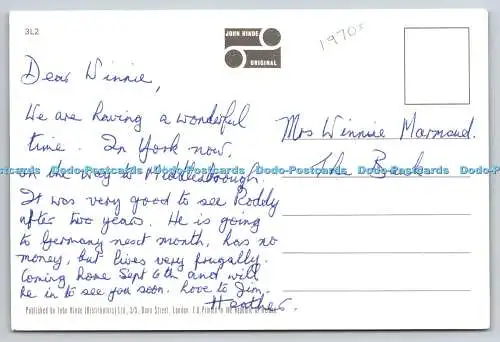 3L2
JOHN HINDE
ORIGINAL
1970s
Dear Winnie,
We are having a wonderful
time. In York now,
on the way to Middlesbrough.
It was very good to see Roddy
after two years. He is going
to Germany next month, has no
money, but lives very frugally.
Coming home Sept 6th and will
be in to see you soon. Love to Jim.
Heather.
Mrs Winnie Marmaud.
The
Dodo-Postcards Dodo-Postcards Dodo-Postcards Dodo-Postcards Dodo-Postcards Dodo-Postcards
Published by John Hinde (Distributors) Ltd., 3/5, Dean Street, London. Printed in the Republic of Ireland